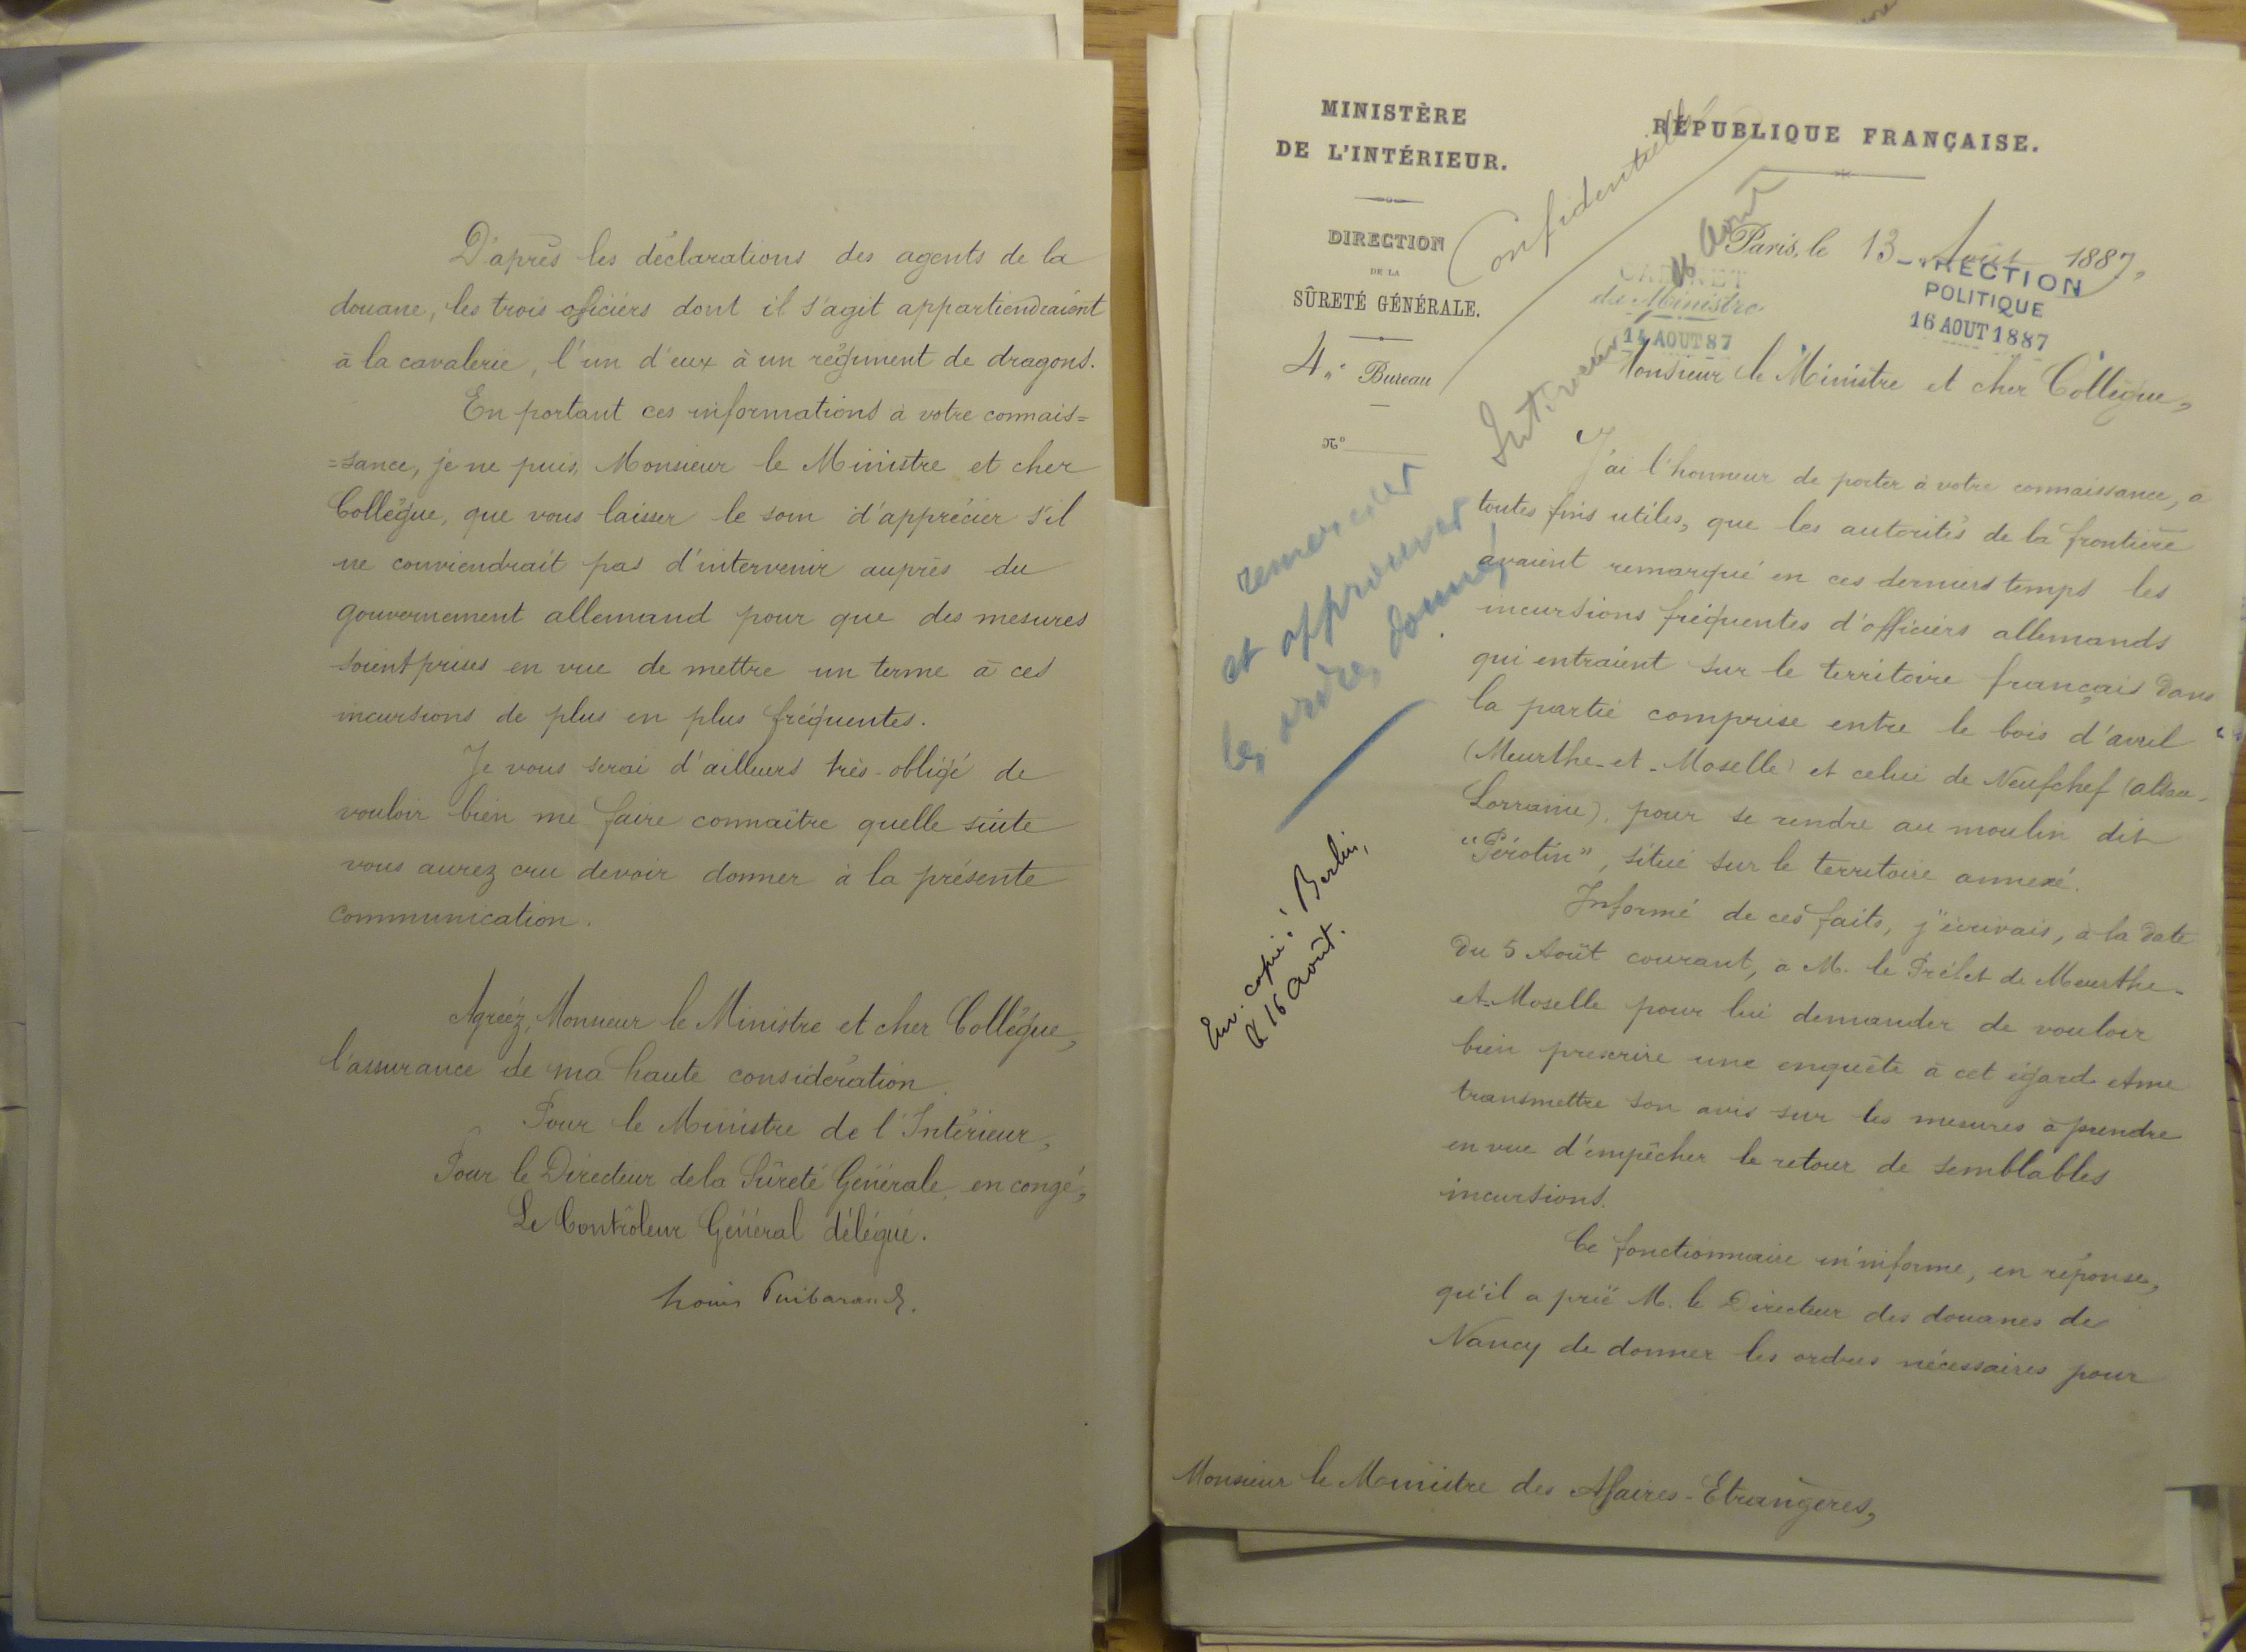 D'après les déclarations des agents de la
douane, les trois officiers dont il s'agit appartiendraient
à la cavalerie, l'un d'eux à un régiment de dragons.
En portant ces informations à votre connais=
=sance, je ne puis, Monsieur le Ministre et cher
Collègue, que vous laisser le soin d'apprécier s'il
ne conviendrait pas d'intervenir auprès du
gouvernement allemand pour que des mesures
soient prises en vue de mettre un terme à ces
incursions de plus en plus fréquentes.
Je vous serai d'ailleurs très-obligé de
vouloir bien me faire connaître quelle suite
vous aurez cru devoir donner à la présente
communication.
Agréez, Monsieur le Ministre et cher Collègue,
l'assurance de ma haute considération.
Pour le Ministre de l'Intérieur,
Pour le Directeur de la Sûreté Générale, en congé,
Le Contrôleur Général délégué.
Louis Puibaraud.
MINISTÈRE
DE L'INTÉRIEUR.
DIRECTION
DE LA
SÛRETÉ GÉNÉRALE.
4e Bureau
No
Confidentielle
RÉPUBLIQUE FRANÇAISE.
Paris, le 13 Août 1887,
CABINET
du Ministre
14 AOUT 87
DIRECTION
POLITIQUE
16 AOUT 1887
16 Août
Int.rieur
remercier
et approuver
les ordres donnés
Env. copie à Berlin,
le 16 Août.
Monsieur le Ministre et cher Collègue,
J'ai l'honneur de porter à votre connaissance, à
toutes fins utiles, que les autorités de la frontière
avaient remarqué en ces derniers temps les
incursions fréquentes d'officiers allemands
qui entraient sur le territoire français dans
la partie comprise entre le bois d'avril
(Meurthe-et-Moselle) et celui de Neufchef (alsace-
Lorraine), pour se rendre au moulin dit
"Pérotin", situé sur le territoire annexé.
Informé de ces faits, j'écrivais, à la date
du 5 Août courant, à M. le Préfet de Meurthe-
et-Moselle pour lui demander de vouloir
bien prescrire une enquête à cet égard et me
transmettre son avis sur les mesures à prendre
en vue d'empêcher le retour de semblables
incursions.
Ce fonctionnaire m'informe, en réponse,
qu'il a prié M. le Directeur des douanes de
Nancy de donner les ordres nécessaires pour
Monsieur le Ministre des Affaires-Etrangères,